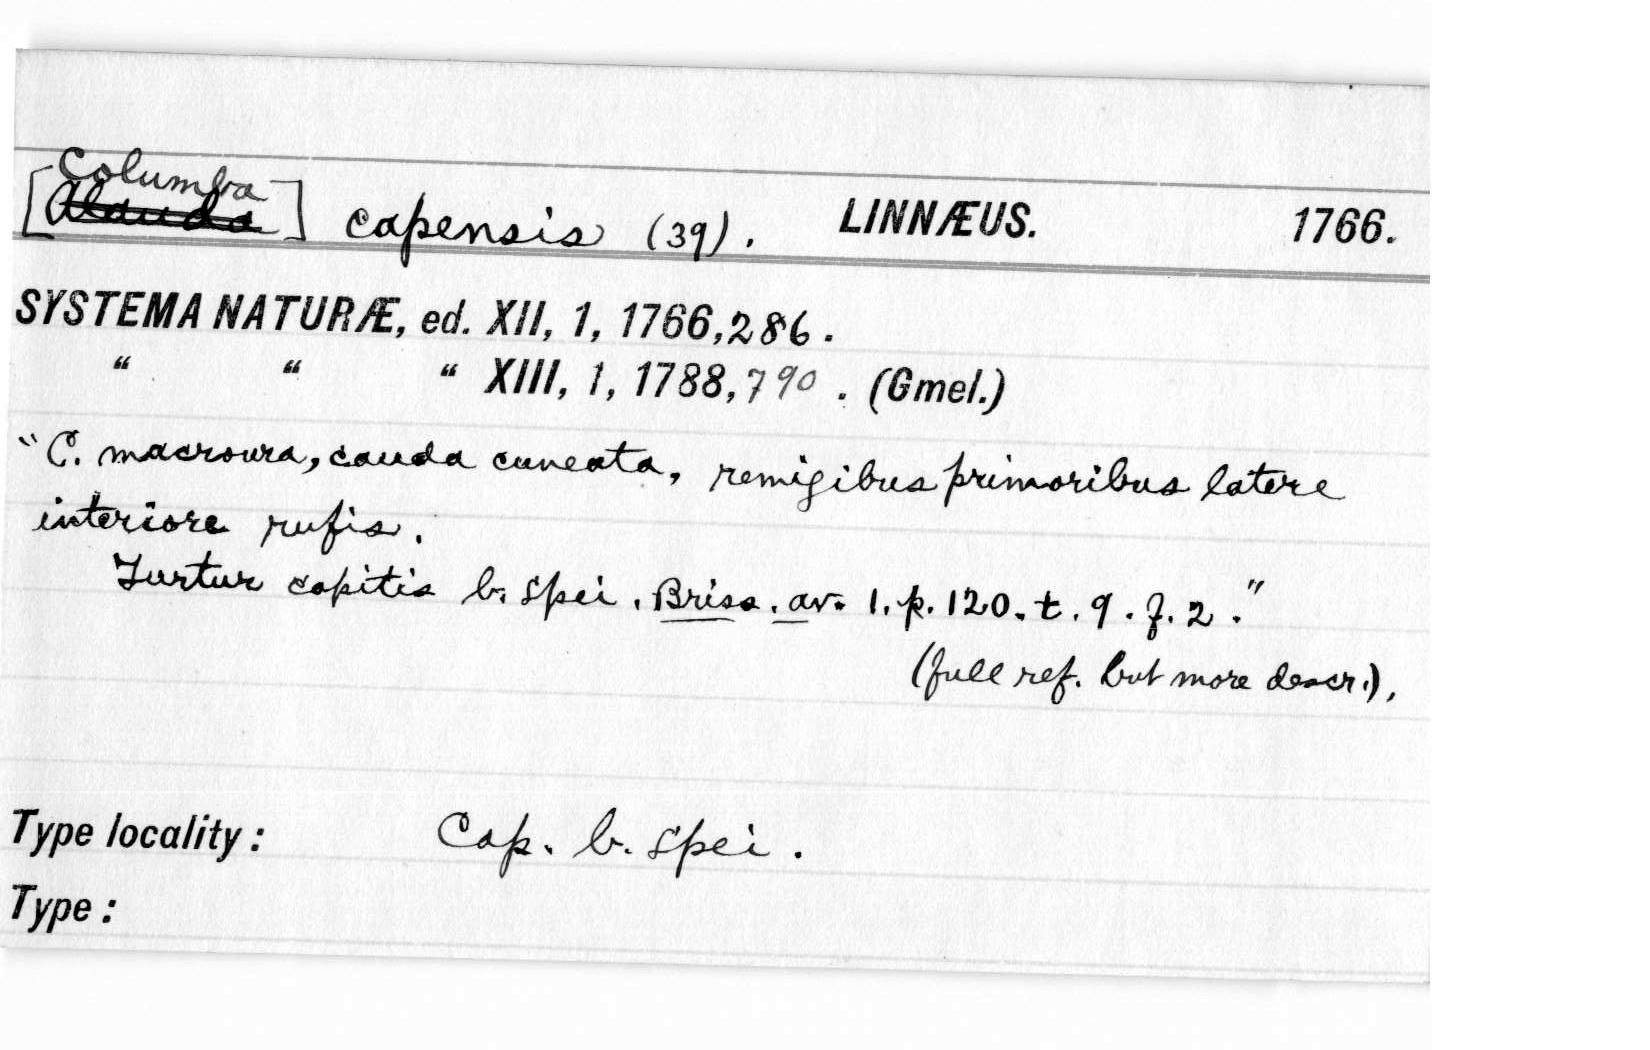 Columba
[Alauda] capensis (39). LINNÆUS. 1766.
SYSTEMA NATURÆ, ed. XII, 1, 1766, 286.
“ “ “ XIII, 1, 1788, 790. (Gmel.)
“C. macroura, cauda cuneata, remigibus primoribus latere
interiore rufis.
Turtur capitis b. spei. Briss. av. 1. p. 120. t. 9. f. 2.”
(full ref. but more descr.),
Type locality: Cap. b. spei.
Type: